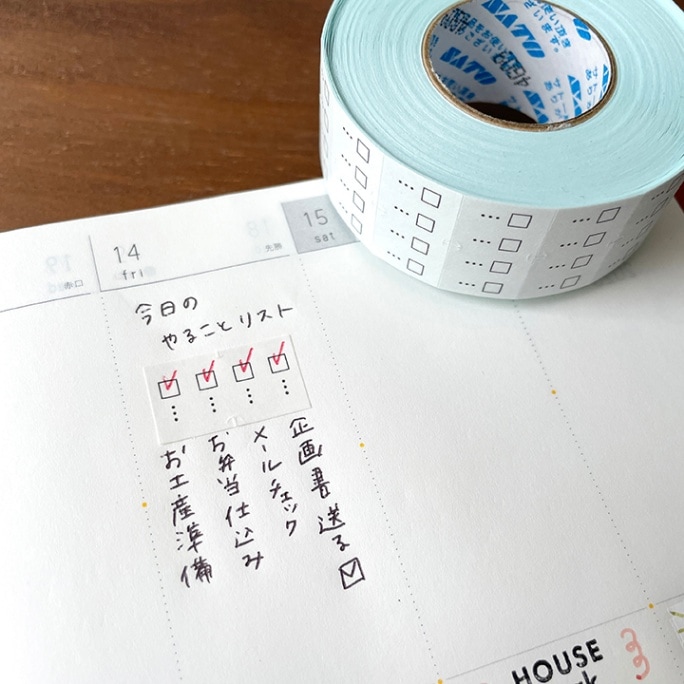 SATO
14
fri
先勝
15
sat
赤口
今日の
やることリスト
企画書送る
メールチェック
お弁当仕込み
お土産準備
HOUSE